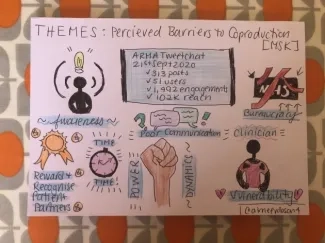 THEMES: Percieved Barriers to Coproduction
[MSK]
ARMA Tweetchat
21st Sept 2020
✓ 313 posts
✓ 51 users
✓ 1,992 engagements
✓ 102K reach
NHS
Bureaucracy
~Awareness~
? ?
Poor Communication
Clinician
TIME
TIME!
POWER
DYNAMICS
Reward &
Recognise
Patient
Partners
Vulnerability